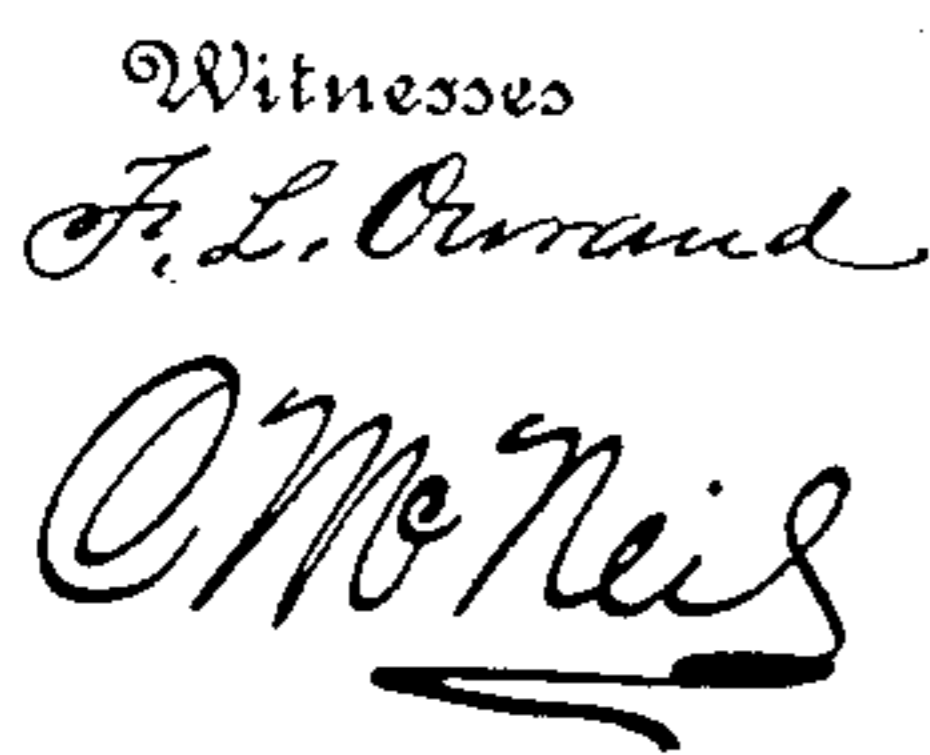 Witnesses
F. L. Ourand
C McNeil